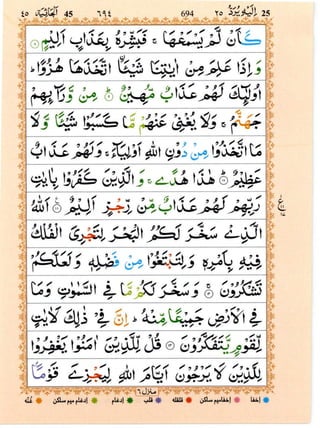 اليه يرد ٢٥ 25 694 ٦٩٤ الجاثية 45 ٤٥
كَاَنْ لَّمْ يَسْمَعْهَا ۚ فَبَشِّرْهُ بِعَذَابٍ اَلِيْمٍ ۝
وَاِذَا عَلِمَ مِنْ اٰيٰتِنَا شَيْئًا اتَّخَذَهَا هُزُوًا ؕ
اُولٰٓئِكَ لَهُمْ عَذَابٌ مُّهِيْنٌ ۝ مِنْ وَّرَآئِهِمْ
جَهَنَّمُ ۚ وَلَا يُغْنِيْ عَنْهُمْ مَّا كَسَبُوْا شَيْئًا وَّلَا
مَا اتَّخَذُوْا مِنْ دُوْنِ اللّٰهِ اَوْلِيَآءَ ۚ وَلَهُمْ عَذَابٌ
عَظِيْمٌ ۝ هٰذَا هُدًى ۚ وَالَّذِيْنَ كَفَرُوْا بِاٰيٰتِ
رَبِّهِمْ لَهُمْ عَذَابٌ مِّنْ رِّجْزٍ اَلِيْمٌ ۝ اَللّٰهُ
الَّذِيْ سَخَّرَ لَكُمُ الْبَحْرَ لِتَجْرِيَ الْفُلْكُ
فِيْهِ بِاَمْرِهٖ وَلِتَبْتَغُوْا مِنْ فَضْلِهٖ وَلَعَلَّكُمْ
تَشْكُرُوْنَ ۝ وَسَخَّرَ لَكُمْ مَّا فِي السَّمٰوٰتِ وَمَا
فِي الْاَرْضِ جَمِيْعًا مِّنْهُ ؕ اِنَّ فِيْ ذٰلِكَ لَاٰيٰتٍ
لِّقَوْمٍ يَّتَفَكَّرُوْنَ ۝ قُلْ لِّلَّذِيْنَ اٰمَنُوْا يَغْفِرُوْا
لِلَّذِيْنَ لَا يَرْجُوْنَ اَيَّامَ اللّٰهِ لِيَجْزِيَ قَوْمًا
منزل ٦
إخفا إخفا ميم ساكن قلقله قلب إدغام إدغام ميم ساكن غنّه